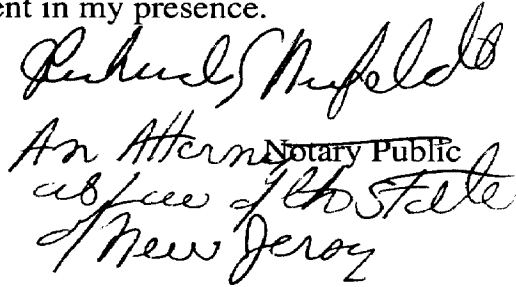 ent in my presence.
An Attorney Notary Public
at Law of the State
of New Jersey